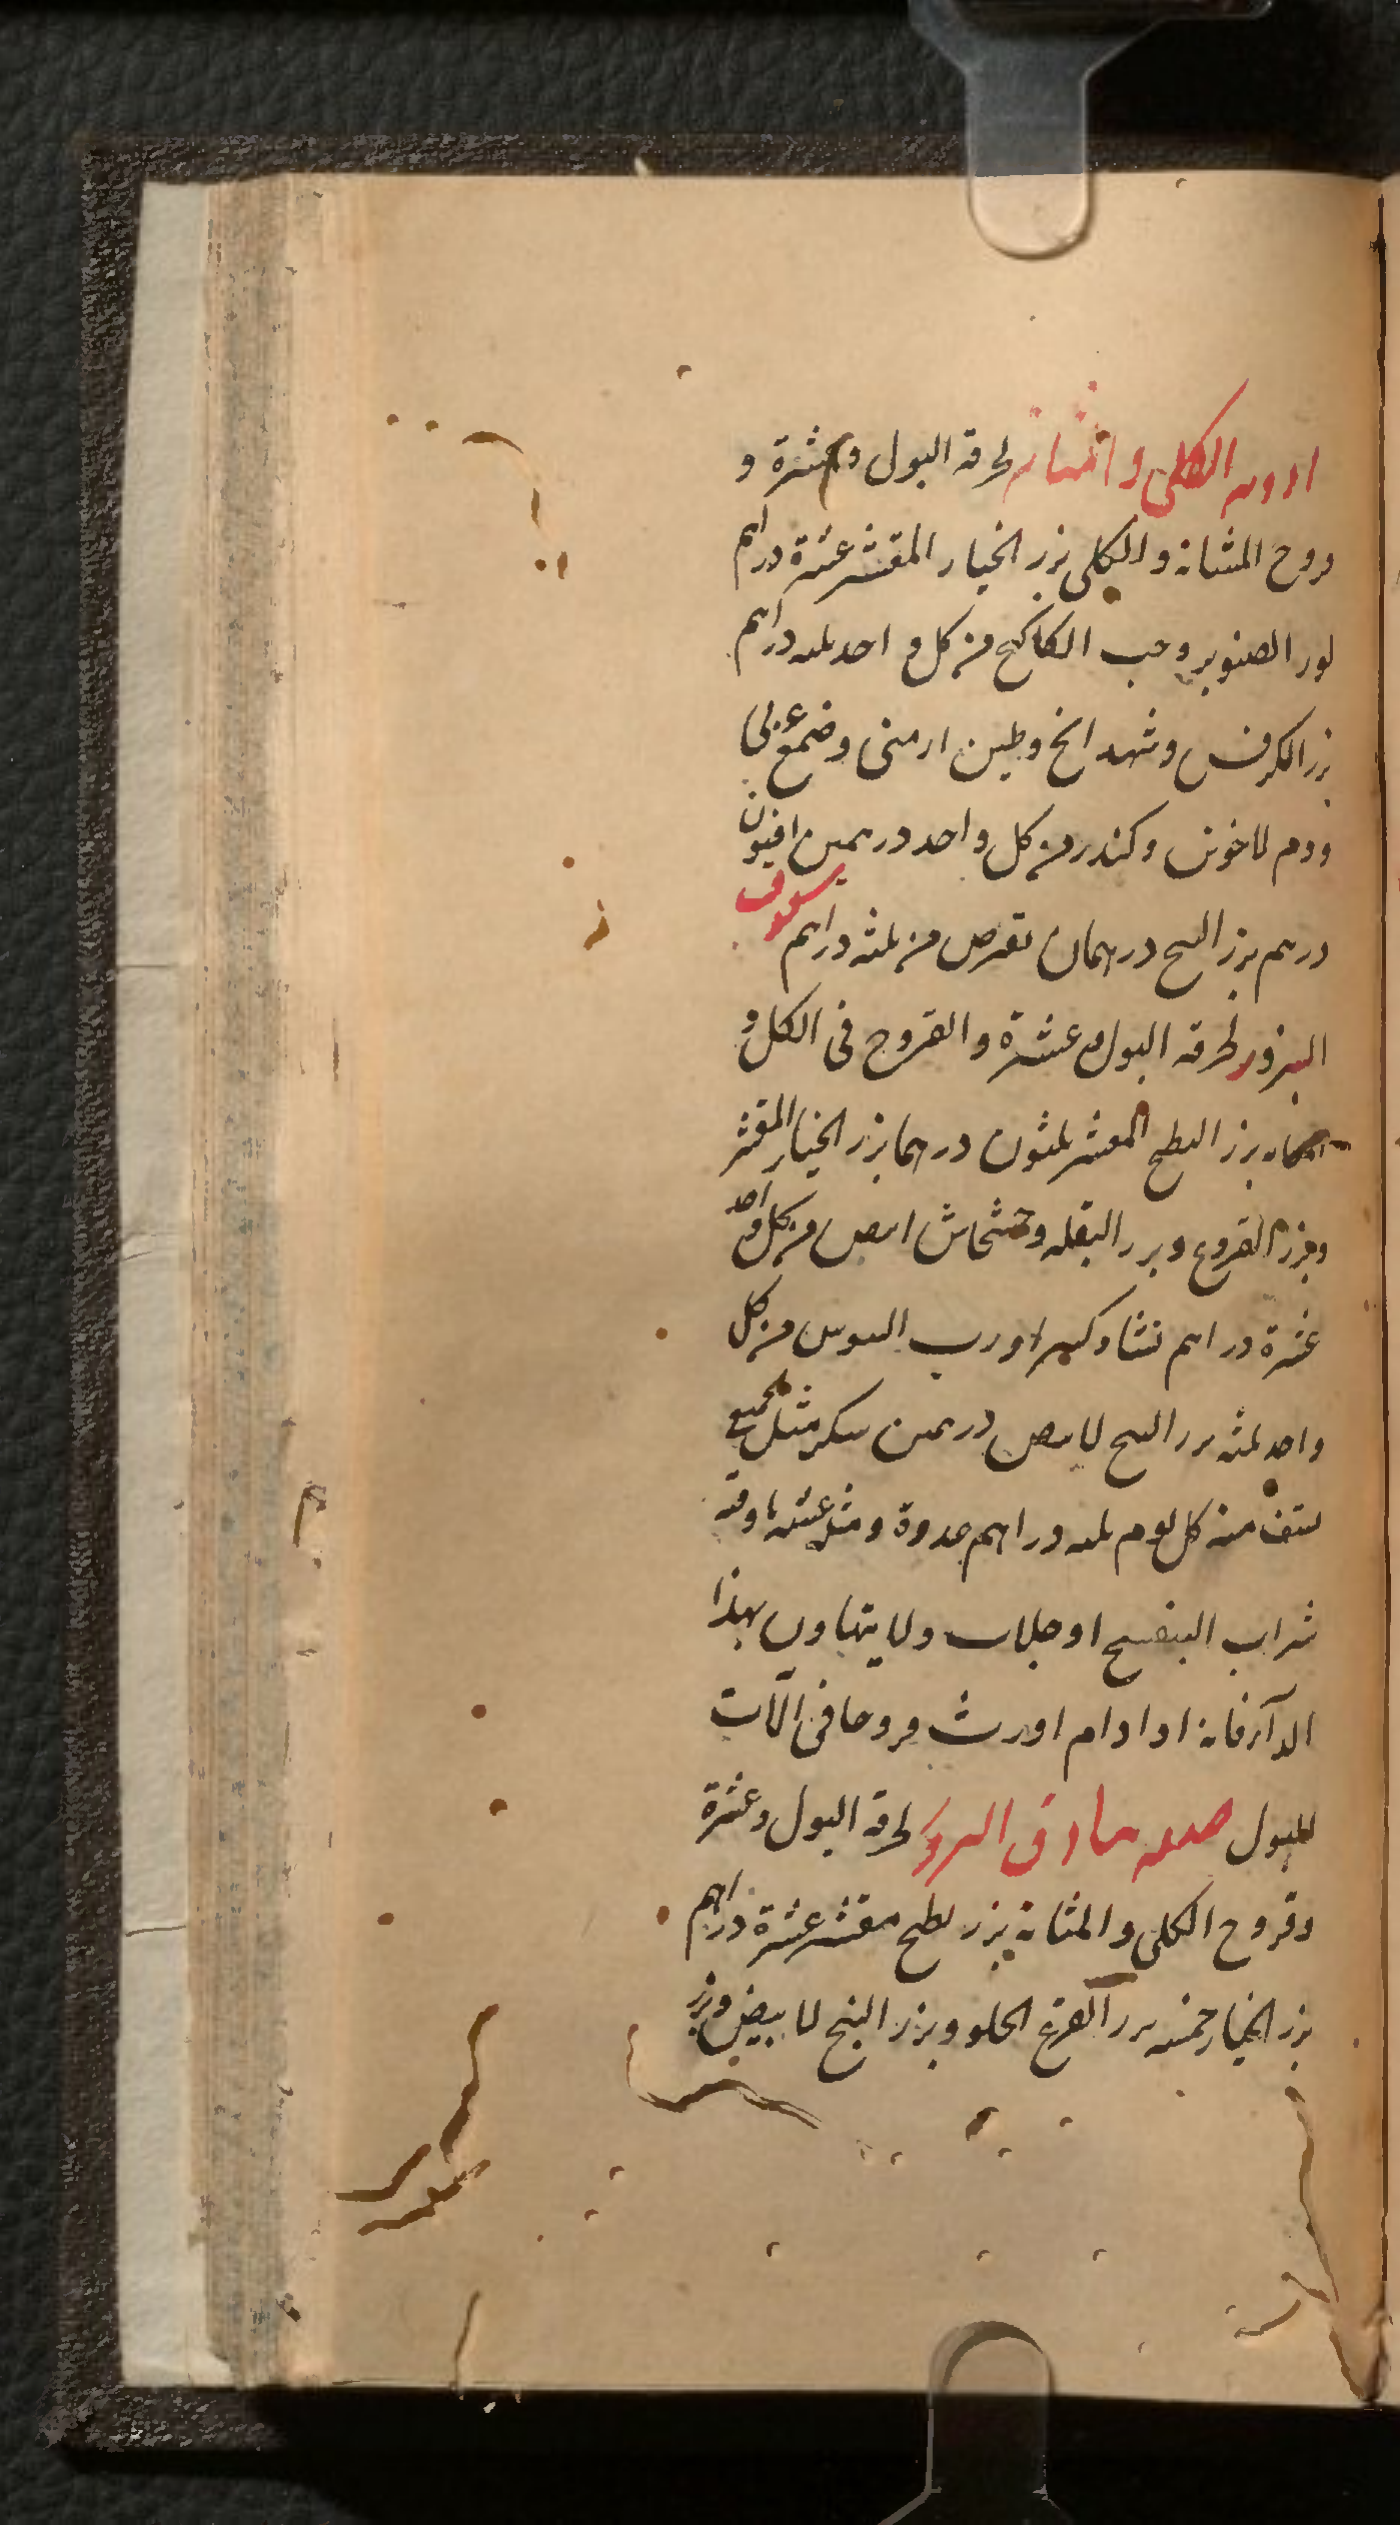 ادويه الكلى والمثانة لحرقة البول وعشرة و
قروح المثانة والكلى بزر الخيار المقشر عشرة دراهم
لوز الصنوبر وحب الكاكنج من كل واحد ثلثه دراهم
بزر الكرفس وشهدانج وطين ارمنى وصمغ عربى
ودم لاخوين وكندر من كل واحد درهمين افيون
درهم بزر البنج درهمان يقرص من ثلثه دراهم سفوف
البزور لحرقة البول وعشرة والقروح فى الكلى و
المثانه بزر البطيخ المقشر ثلثون درهما بزر الخيار المقشر
وبزر القرع وبزر البقله وخشخاش ابيض من كل واحد
عشرة دراهم نشا وكثيرا ورب السوس من كل
واحد ثلثه بزر البنج لابيض درهمين سكر مثل الجميع
يستف منه كل يوم ثلثه دراهم غدوة ومثل عشيه اوقية
شراب البنفسج او جلاب ولا يتهاون بهذا
الدآء فانه اذا دام اورث قروحا فى آلات
للبول صفه بنادق البزور لحرقة البول وعشرة
وقروح الكلى والمثانة بزر بطيخ مقشر عشرة دراهم
بزر الخيار خمسه بزر القرع الحلو وبزر البنج لابيض وبزر